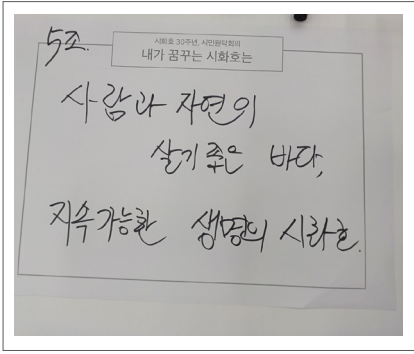 5조.
시화호 30주년, 시민원탁회의
내가 꿈꾸는 시화호는
사람과 자연의
살기 좋은 바다,
지속가능한 생명의 시화호.